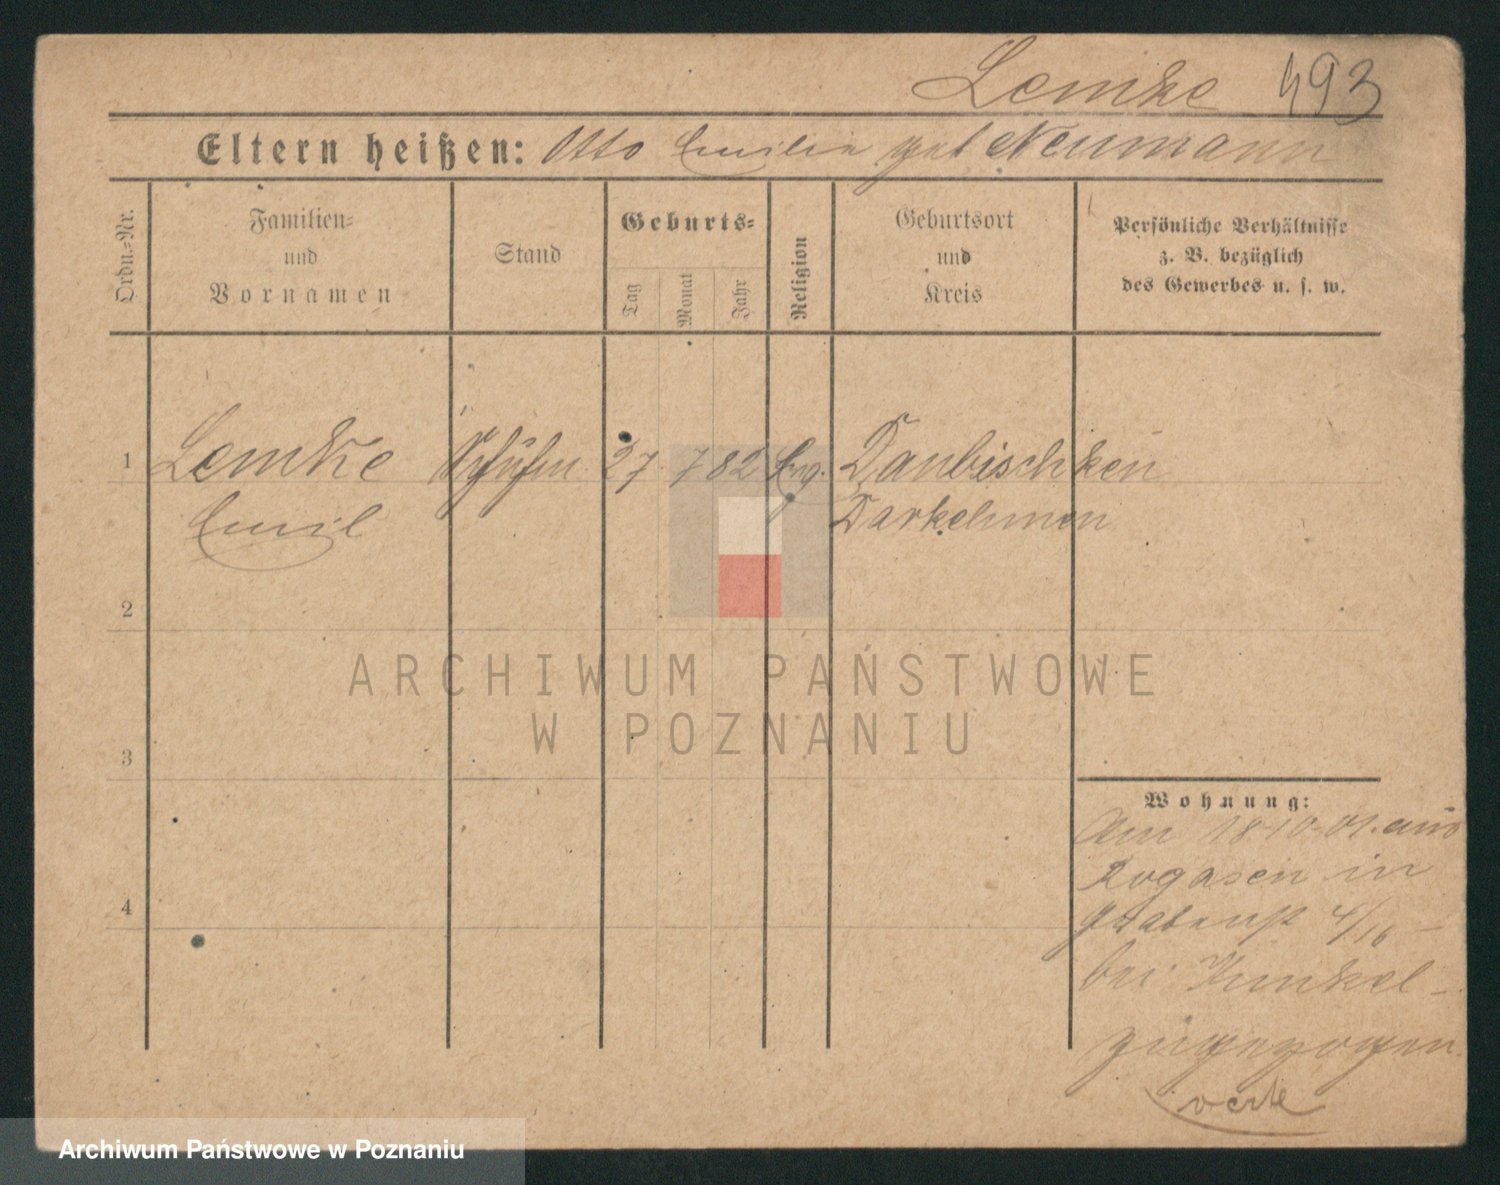 Lemke 493
Eltern heißen: Otto Emilie geb Neumann
Ordn.-Nr.
Familien-
und
Vornamen
Stand
Geburts-
Tag
Monat
Jahr
Religion
Geburtsort
und
Kreis
Persönliche Verhältnisse
z. B. bezüglich
des Gewerbes u. s. w.
1 Lemke 27 7 82 Evg. Daubischken
Emil Darkehmen
2
3
4
Wohnung:
Am 18.10.01. aus
Rogasen in
Grabenst 4/16 -
bei Kunkel -
zugezogen
ARCHIWUM PAŃSTWOWE
W POZNANIU
Archiwum Państwowe w Poznaniu